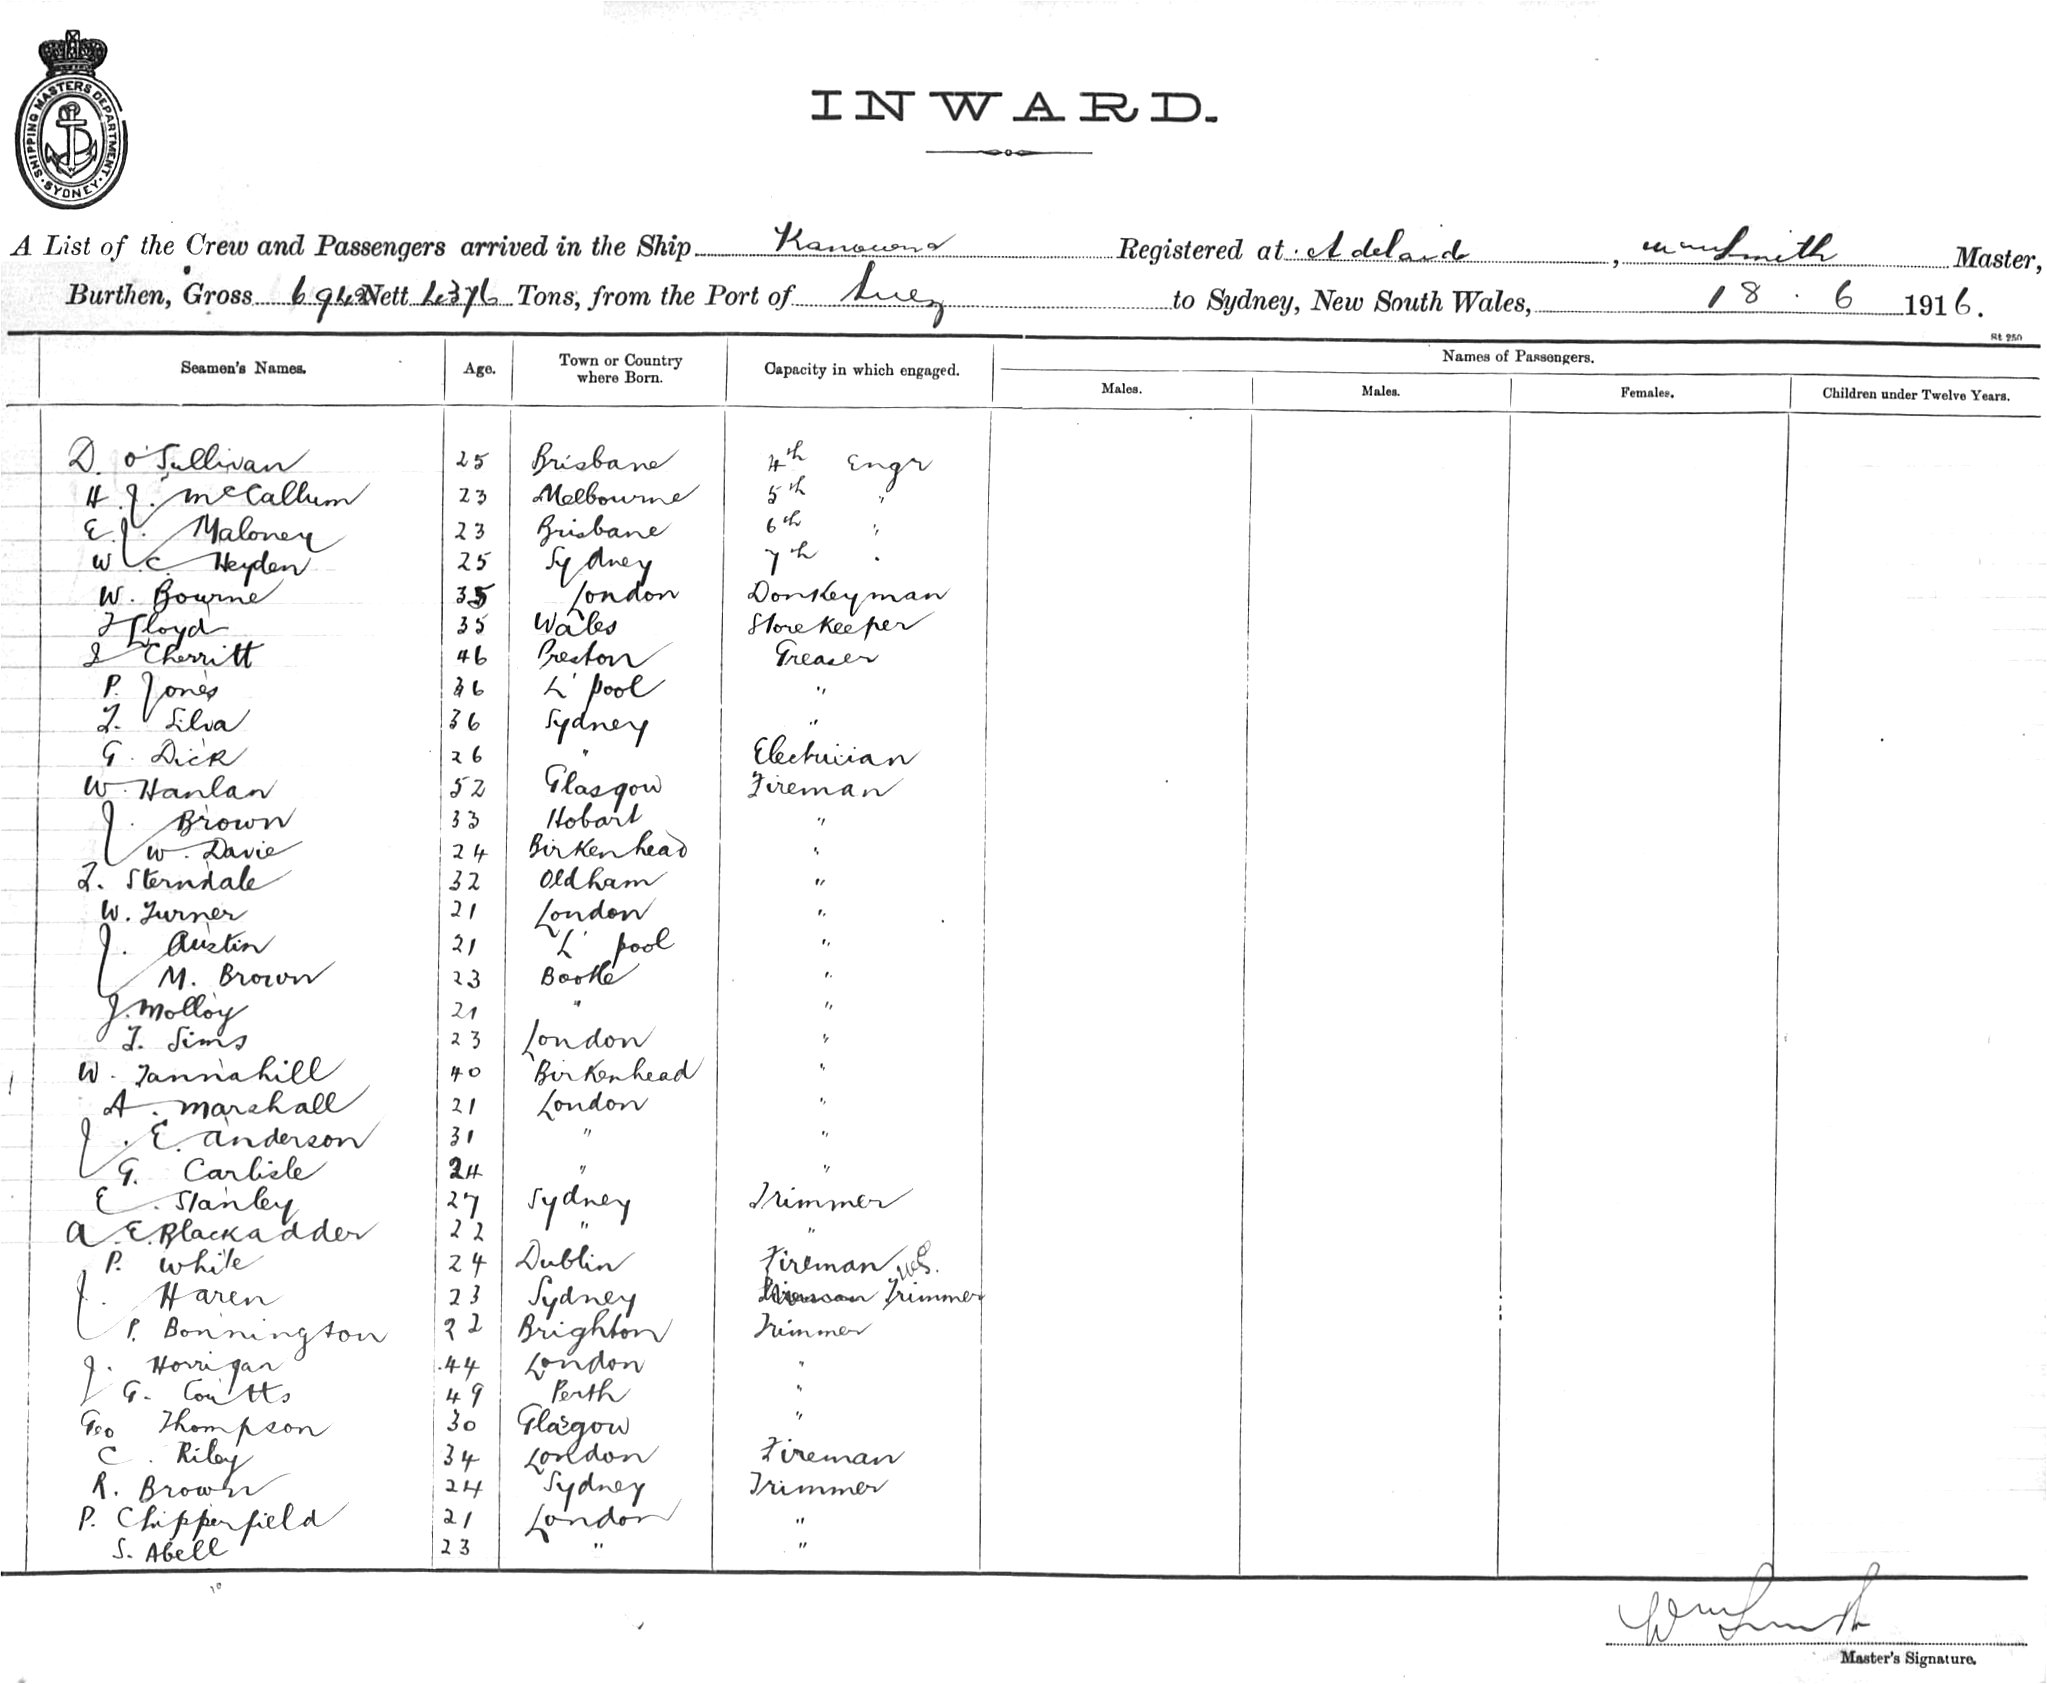 SHIPPING MASTERS DEPARTMENT. SYDNEY.
INWARD.
A List of the Crew and Passengers arrived in the Ship Kanowna Registered at Adelaide, Wm Smith Master,
Burthen, Gross 6942 Nett 4376 Tons, from the Port of Suez to Sydney, New South Wales, 18.6 1916.
St 250
Seamen's Names. Age. Town or Country where Born. Capacity in which engaged. Names of Passengers.
Males. Males. Females. Children under Twelve Years.
D. O'Sullivan 25 Brisbane 4th Engr
H. J. McCallum 23 Melbourne 5th "
E. J. Maloney 23 Brisbane 6th "
W. C. Heyden 25 Sydney 7th "
W. Bourne 35 London Donkeyman
Lloyd 35 Wales Storekeeper
Cherritt 46 Preston Greaser
P. Jones 36 L'pool "
Silva 36 Sydney "
G. Dick 26 " Electrician
W. Hanlan 52 Glasgow Fireman
J. Brown 33 Hobart "
W. Davie 24 Birkenhead "
Sterndale 32 Oldham "
W. Turner 21 London "
J. Austin 21 L'pool "
M. Brown 23 Bootle "
J. Molloy 21 " "
T. Sims 23 London "
W. Tannahill 40 Birkenhead "
A. Marshall 21 London "
J. E. Anderson 31 " "
G. Carlisle 24 " "
E. Stanley 27 Sydney Trimmer
A. E. Blackadder 22 " "
P. White 24 Dublin Fireman
J. Haren 23 Sydney Fireman Trimmer
P. Bonnington 22 Brighton Trimmer
J. Horrigan 44 London "
G. Coutts 49 Perth "
Geo Thompson 30 Glasgow "
C. Riley 34 London Fireman
R. Brown 24 Sydney Trimmer
P. Chipperfield 21 London "
S. Abell 23 " "
Wm Smith
Master's Signature.